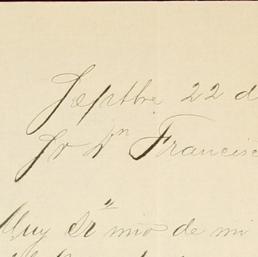 Septbre 22 d
Sr Dn Francisc
Muy Sr mio de mi